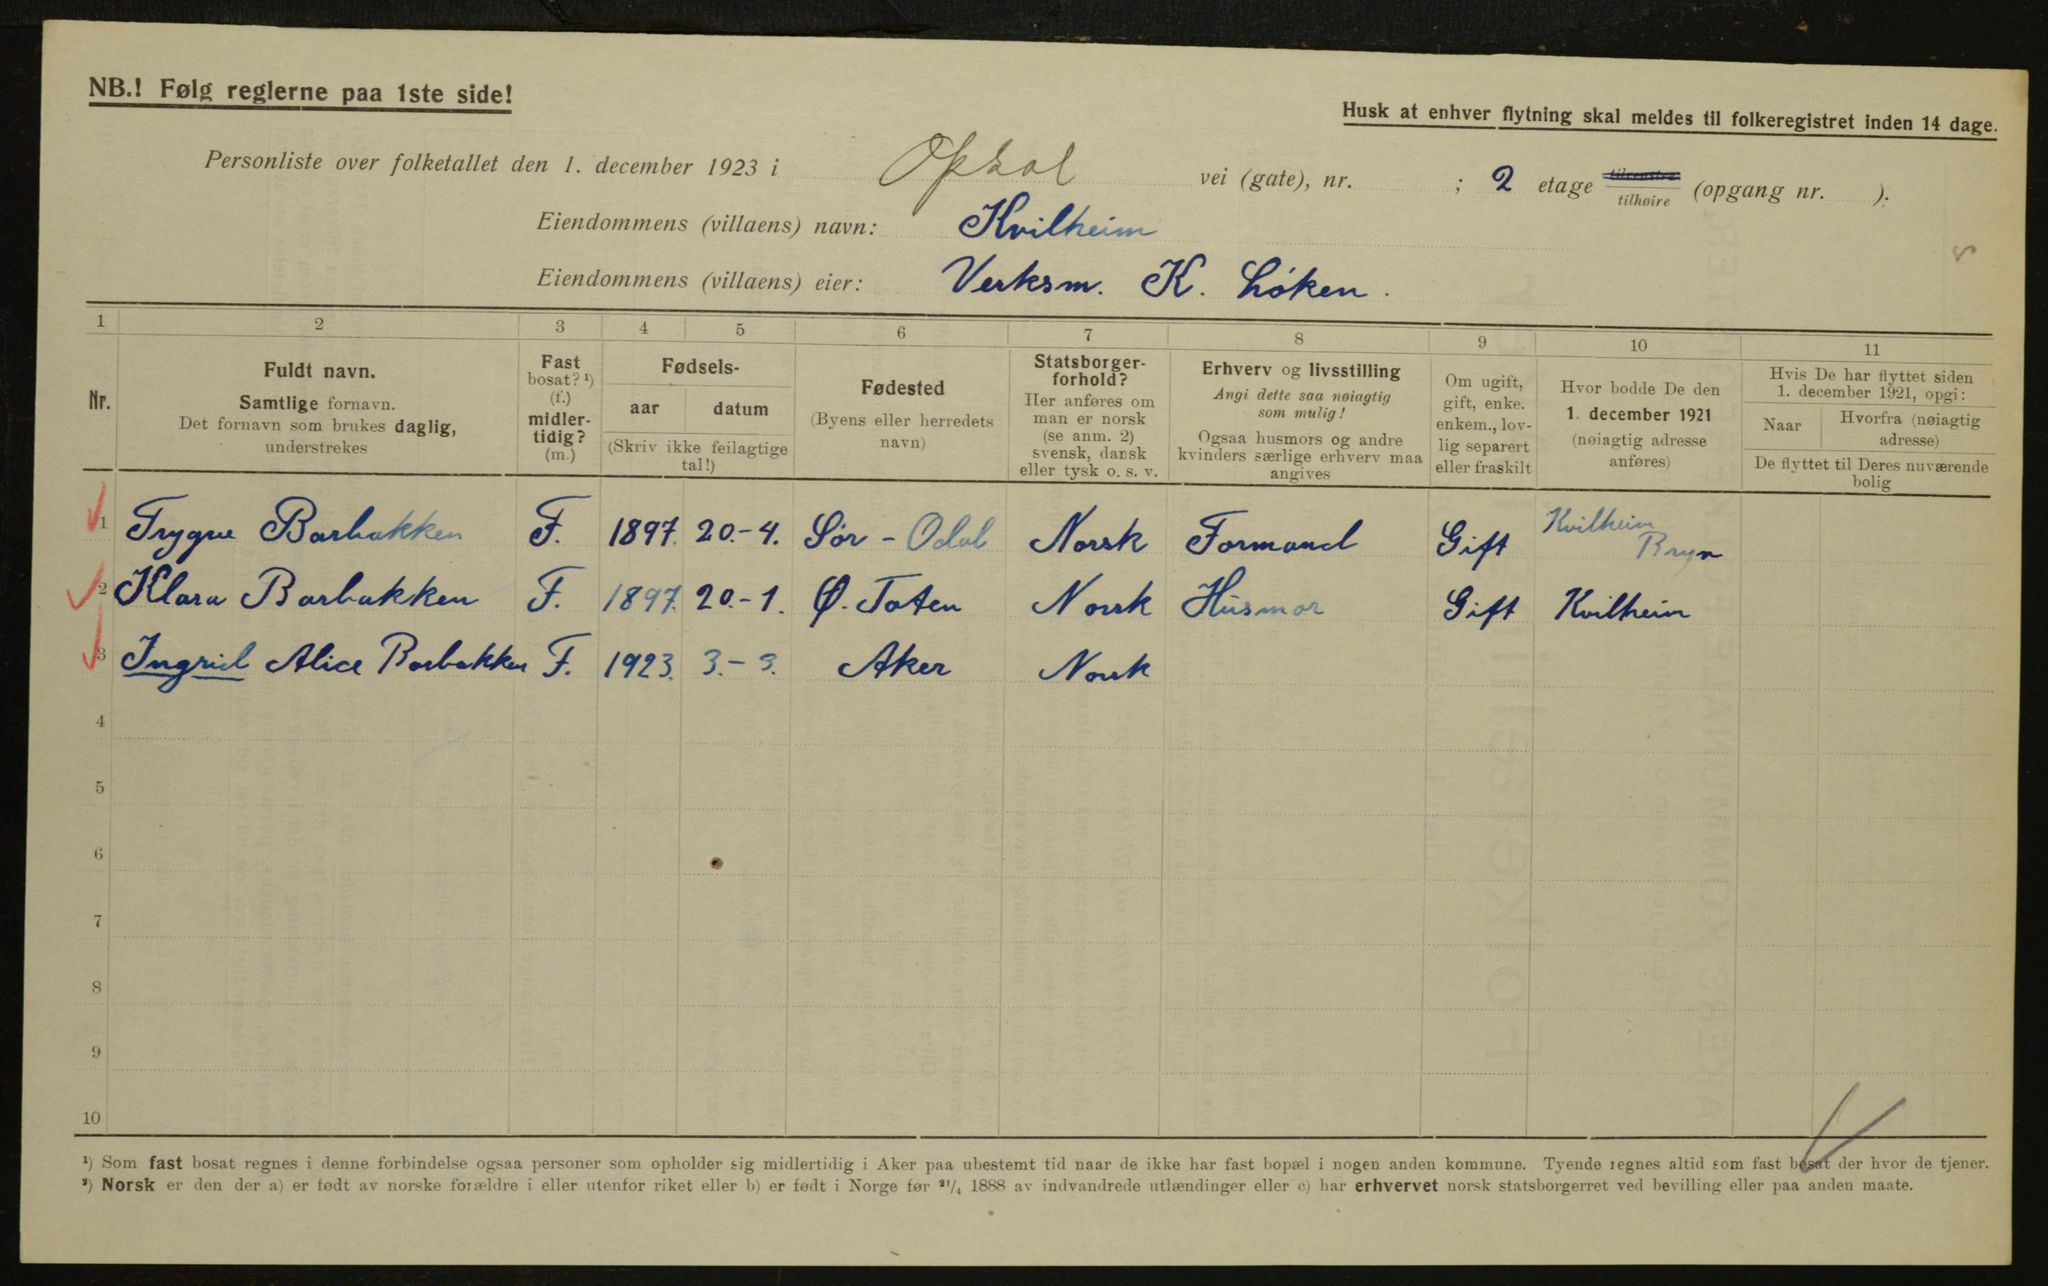 NB.! Følg reglerne paa 1ste side!
Husk at enhver flytning skal meldes til folkeregistret inden 14 dage.
Personliste over folketallet den 1. december 1923 i Opsal vei (gate), nr. ; 2 etage tilvenstre / tilhøire (opgang nr. ).
Eiendommens (villaens) navn: Kvilheim
Eiendommens (villaens) eier: Verksm. K. Løken.
1 2 3 4 5 6 7 8 9 10 11
Nr.
Fuldt navn.
Samtlige fornavn.
Det fornavn som brukes daglig,
understrekes
Fast
bosat? ¹)
(f.)
midler-
tidig?
(m.)
Fødsels-
aar datum
(Skriv ikke feilagtige
tal!)
Fødested
(Byens eller herredets
navn)
Statsborger-
forhold?
Her anføres om
man er norsk
(se anm. 2)
svensk, dansk
eller tysk o. s. v.
Erhverv og livsstilling
Angi dette saa nøiagtig
som mulig!
Ogsaa husmors og andre
kvinders særlige erhverv maa
angives
Om ugift,
gift, enke.
enkem., lov-
lig separert
eller fraskilt
Hvor bodde De den
1. december 1921
(nøiagtig adresse
anføres)
Hvis De har flyttet siden
1. december 1921, opgi:
Naar Hvorfra (nøiagtig
adresse)
De flyttet til Deres nuværende
bolig
1 Trygve Barbakken F. 1897. 20.-4. Sør-Odal Norsk Formand Gift Kvilheim
Bryn
2 Klara Barbakken F. 1897. 20.-1. Ø. Toten Norsk Husmor Gift Kvilheim
3 Ingrid Alice Barbakken F. 1923. 3.-3. Aker Norsk
4
5
6
7
8
9
10
¹) Som fast bosat regnes i denne forbindelse ogsaa personer som opholder sig midlertidig i Aker paa ubestemt tid naar de ikke har fast bopæl i nogen anden kommune. Tyende regnes altid som fast bosat der hvor de tjener.
²) Norsk er den der a) er født av norske forældre i eller utenfor riket eller b) er født i Norge før ²¹/₄ 1888 av indvandrede utlændinger eller c) har erhvervet norsk statsborgerret ved bevilling eller paa anden maate.